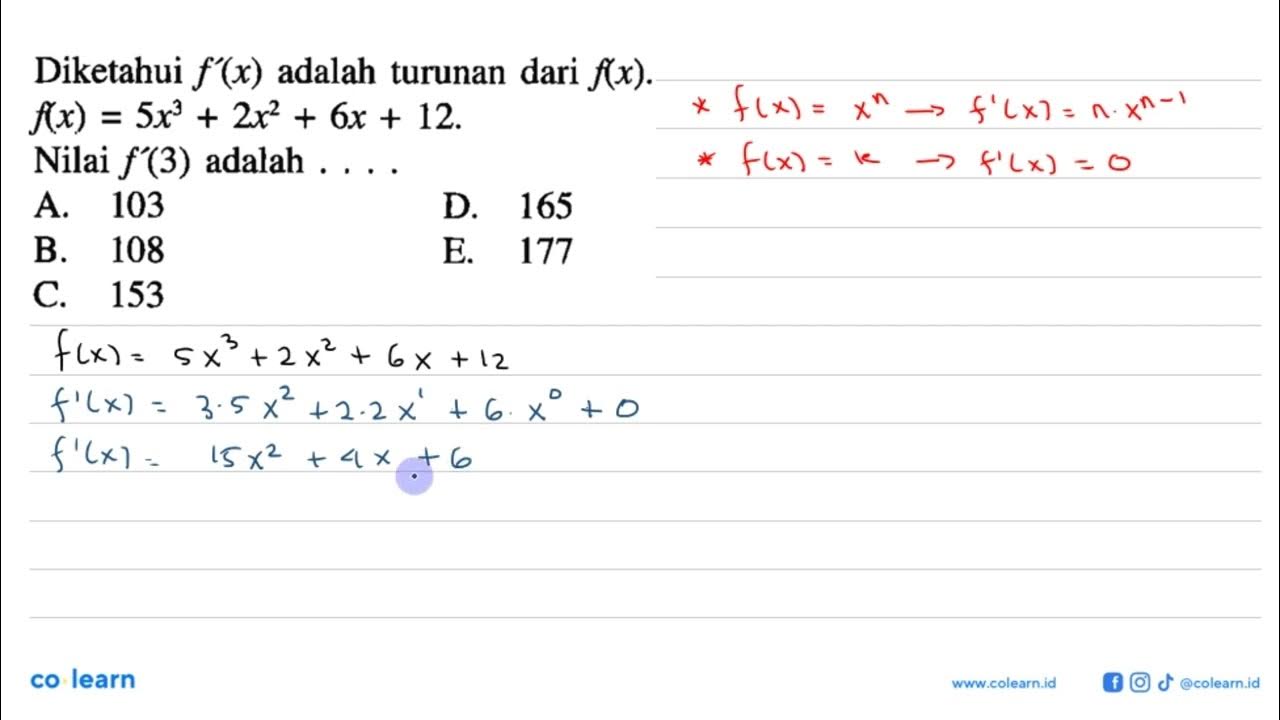 Diketahui f´(x) adalah turunan dari f(x).
f(x) = 5x³ + 2x² + 6x + 12.
Nilai f´(3) adalah . . . .
A. 103
B. 108
C. 153
D. 165
E. 177
* f(x) = xⁿ → f'(x) = n · xⁿ⁻¹
* f(x) = k → f'(x) = 0
f(x) = 5x³ + 2x² + 6x + 12
f'(x) = 3·5x² + 2·2x¹ + 6·x⁰ + 0
f'(x) = 15x² + 4x + 6
co·learn
www.colearn.id
@colearn.id